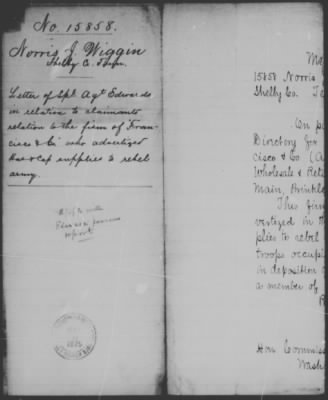 No. 15858.
Norris J. Wiggin
Shelby C. Tenn.
Letter of Spl. Agt. Edwards
in relation to claimants
relation to the firm of Fran-
cisco & Co who advertised
that cap supplies to rebel
army.
report
Mo
15858 Norris
Shelby Co. Te
On p
Directory for
cisco & Co. (A
Wholesale & Reta
Main, Brinkle
This firm
vertized in th
plies to rebel
troops occupi
in deposition
as member of
Hon. Commiss
Wash